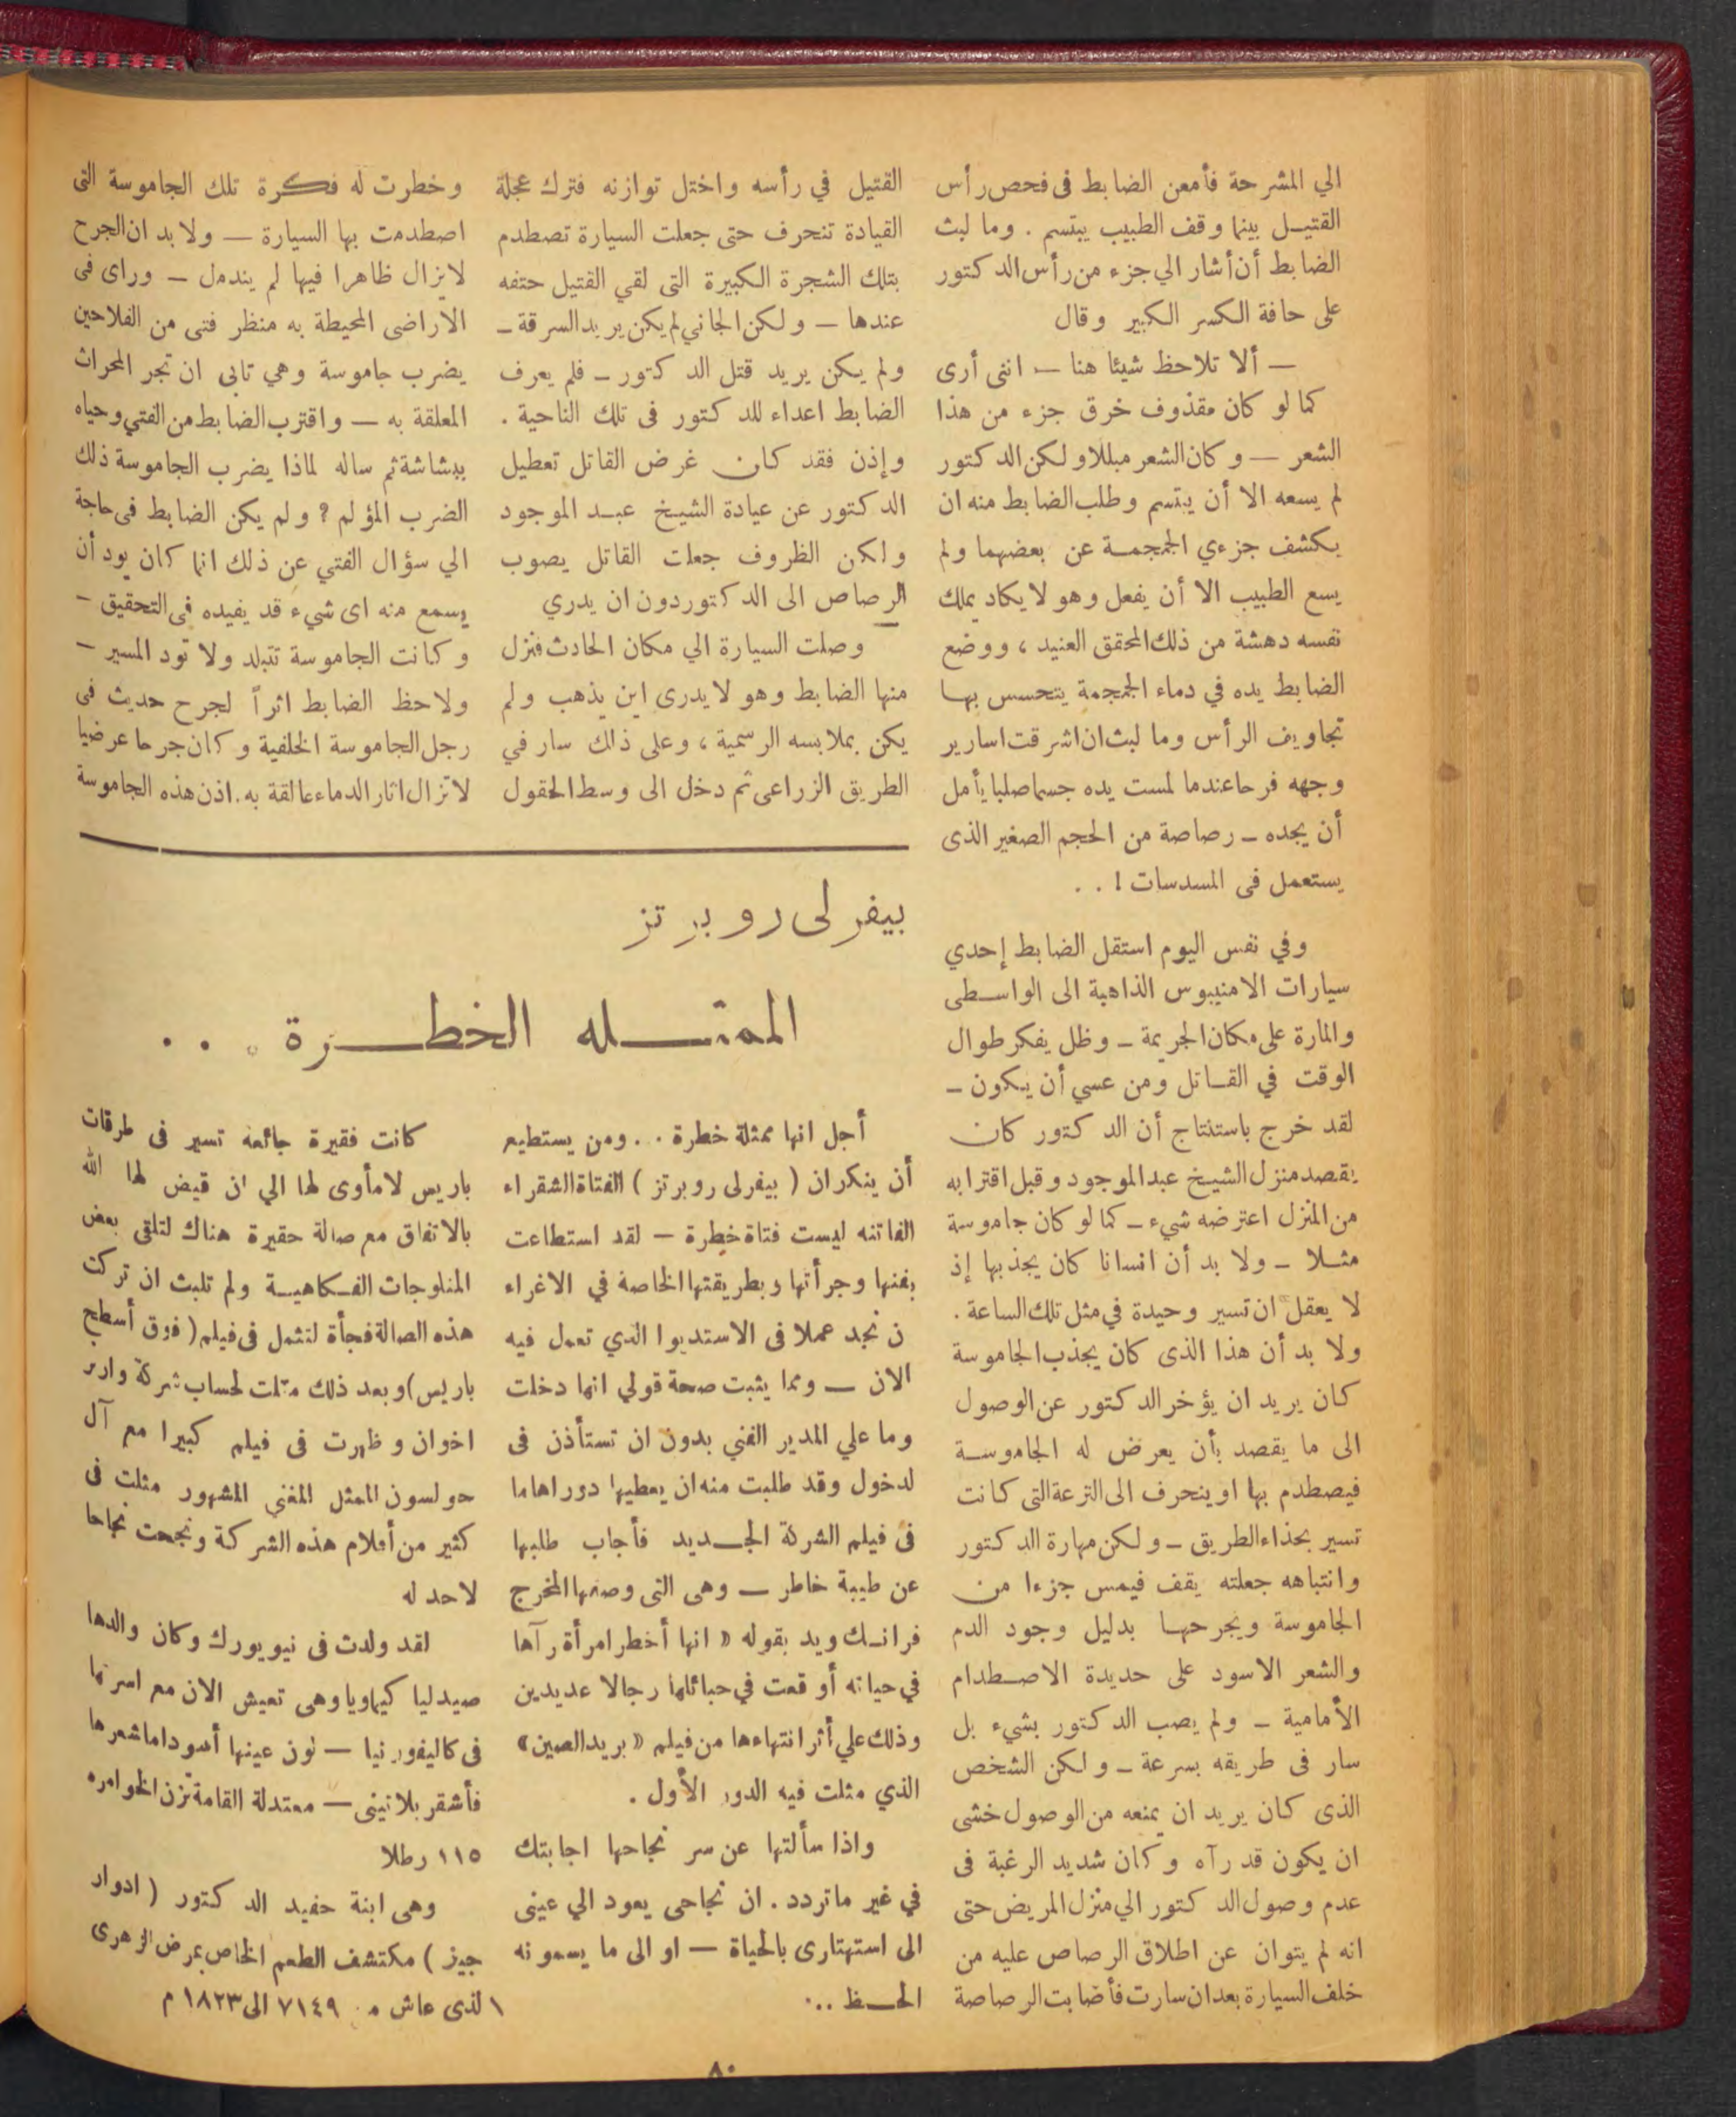 الي المشرحة فأمعن الضابط فى فحص رأس
القتيل بينما وقف الطبيب يبتسم . وما لبث
الضابط أن أشار الي جزء من رأس الدكتور
على حافة الكسر الكبير وقال
— ألا تلاحظ شيئا هنا — اننى أرى
كما لو كان مقذوف خرق جزء من هذا
الشعر — وكان الشعر مبللا ولكن الدكتور
لم يسعه الا أن يبتسم وطلب الضابط منه ان
يكشف جزءي الجمجمة عن بعضهما ولم
يسع الطبيب الا أن يفعل وهو لا يكاد يملك
نفسه دهشة من ذلك المحقق العنيد ، ووضع
الضابط يده في دماء الجمجمة يتحسس بها
تجاويف الرأس وما لبث ان اشرقت اسارير
وجهه فرحا عندما لمست يده جسما صلبا يأمل
أن يجده — رصاصة من الحجم الصغير الذى
يستعمل فى المسدسات ! . .
وفي نفس اليوم استقل الضابط إحدي
سيارات الامنيبوس الذاهبة الى الواسطى
والمارة على مكان الجريمة — وظل يفكر طوال
الوقت في القاتل ومن عسي أن يكون —
لقد خرج باستنتاج أن الدكتور كان
يقصد منزل الشيخ عبد الموجود وقبل اقترابه
من المنزل اعترضه شيء — كما لو كان جاموسة
مثلا — ولا بد أن انسانا كان يجذبها إذ
لا يعقل ان تسير وحيدة في مثل تلك الساعة .
ولا بد أن هذا الذى كان يجذب الجاموسة
كان يريد ان يؤخر الدكتور عن الوصول
الى ما يقصد بأن يعرض له الجاموسة
فيصطدم بها او ينحرف الى الترعة التى كانت
تسير بحذاء الطريق — ولكن مهارة الدكتور
وانتباهه جعلته يقف فيمس جزءا من
الجاموسة ويجرحها بدليل وجود الدم
والشعر الاسود على حديدة الاصطدام
الأمامية — ولم يصب الدكتور بشيء بل
سار فى طريقه بسرعة — ولكن الشخص
الذى كان يريد ان يمنعه من الوصول خشى
ان يكون قد رآه وكان شديد الرغبة فى
عدم وصول الدكتور الي منزل المريض حتى
انه لم يتوان عن اطلاق الرصاص عليه من
خلف السيارة بعد ان سارت فأصابت الرصاصة
القتيل في رأسه واختل توازنه فترك عجلة
القيادة تنحرف حتى جعلت السيارة تصطدم
بتلك الشجرة الكبيرة التى لقي القتيل حتفه
عندها — ولكن الجاني لم يكن يريد السرقة —
ولم يكن يريد قتل الدكتور — فلم يعرف
الضابط اعداء للدكتور فى تلك الناحية .
وإذن فقد كان غرض القاتل تعطيل
الدكتور عن عيادة الشيخ عبد الموجود
ولكن الظروف جعلت القاتل يصوب
الرصاص الى الدكتور دون ان يدري
وصلت السيارة الي مكان الحادث فنزل
منها الضابط وهو لا يدرى اين يذهب ولم
يكن بملابسه الرسمية ، وعلى ذلك سار في
الطريق الزراعى ثم دخل الى وسط الحقول
وخطرت له فكرة تلك الجاموسة التى
اصطدمت بها السيارة — ولا بد ان الجرح
لا يزال ظاهرا فيها لم يندمل — وراى فى
الاراضى المحيطة به منظر فتى من الفلاحين
يضرب جاموسة وهي تابى ان تجر المحراث
المعلقة به — واقترب الضابط من الفتي وحياه
ببشاشة ثم ساله لماذا يضرب الجاموسة ذلك
الضرب المؤلم ؟ ولم يكن الضابط فى حاجة
الي سؤال الفتي عن ذلك انما كان يود أن
يسمع منه اى شيء قد يفيده فى التحقيق —
وكانت الجاموسة تتبلد ولا تود المسير —
ولاحظ الضابط اثراً لجرح حديث فى
رجل الجاموسة الخلفية وكان جرحا عرضيا
لا تزال اثار الدماء عالقة به . اذن هذه الجاموسة
بيفرلى روبرتز
الممثله الخطرة . . .
أجل انها ممثلة خطرة . . ومن يستطيع
أن ينكر ان ( بيفرلى روبرتز ) الفتاة الشقراء
الفاتنه ليست فتاة خطرة — لقد استطاعت
بفنها وجرأتها وبطريقتها الخاصة في الاغراء
ن تجد عملا فى الاستديوا الذي تعمل فيه
الان — ومما يثبت صحة قولي انها دخلت
وما علي المدير الفني بدون ان تستأذن فى
لدخول وقد طلبت منه ان يعطيها دورا هاما
فى فيلم الشركة الجديد فأجاب طلبها
عن طيبة خاطر — وهى التى وصفها المخرج
فرانك ويد بقوله « انها أخطر امرأة رآها
في حياته أوقعت في حبائلها رجالا عديدين
وذلك علي أثر انتهاءها من فيلم « بريد الصين »
الذي مثلت فيه الدور الأول .
واذا سألتها عن سر نجاحها اجابتك
في غير ماتردد . ان نجاحى يعود الي عينى
الى استهتارى بالحياة — او الى ما يسمونه
الحظ ...
كانت فقيرة جائعة تسير فى طرقات
باريس لا مأوى لها الي ان قيض لها الله
بالاتفاق مع صالة حقيرة هناك لتلقى بعض
المنلوجات الفكاهية ولم تلبث ان تركت
هذه الصالة فجأة لتثمل فى فيلم ( فوق أسطح
باريس ) وبعد ذلك مثلت لحساب شركة وارنر
اخوان وظهرت فى فيلم كبيرا مع آل
جولسون الممثل المغني المشهور مثلت فى
كثير من أفلام هذه الشركة ونجحت نجاحا
لاحد له
لقد ولدت فى نيويورك وكان والدها
صيدليا كيماويا وهى تعيش الان مع اسرتها
فى كاليفورنيا — لون عينها أسود اما شعرها
فأشقر بلاتينى — معتدلة القامة تزن
١١٥ رطلا
وهى ابنة حفيد الدكتور ( ادوار
جينر ) مكتشف الطعم الخاص بمرض الزهرى
الذى عاش م ٧١٤٩ الى ١٨٢٣ م
٨٠